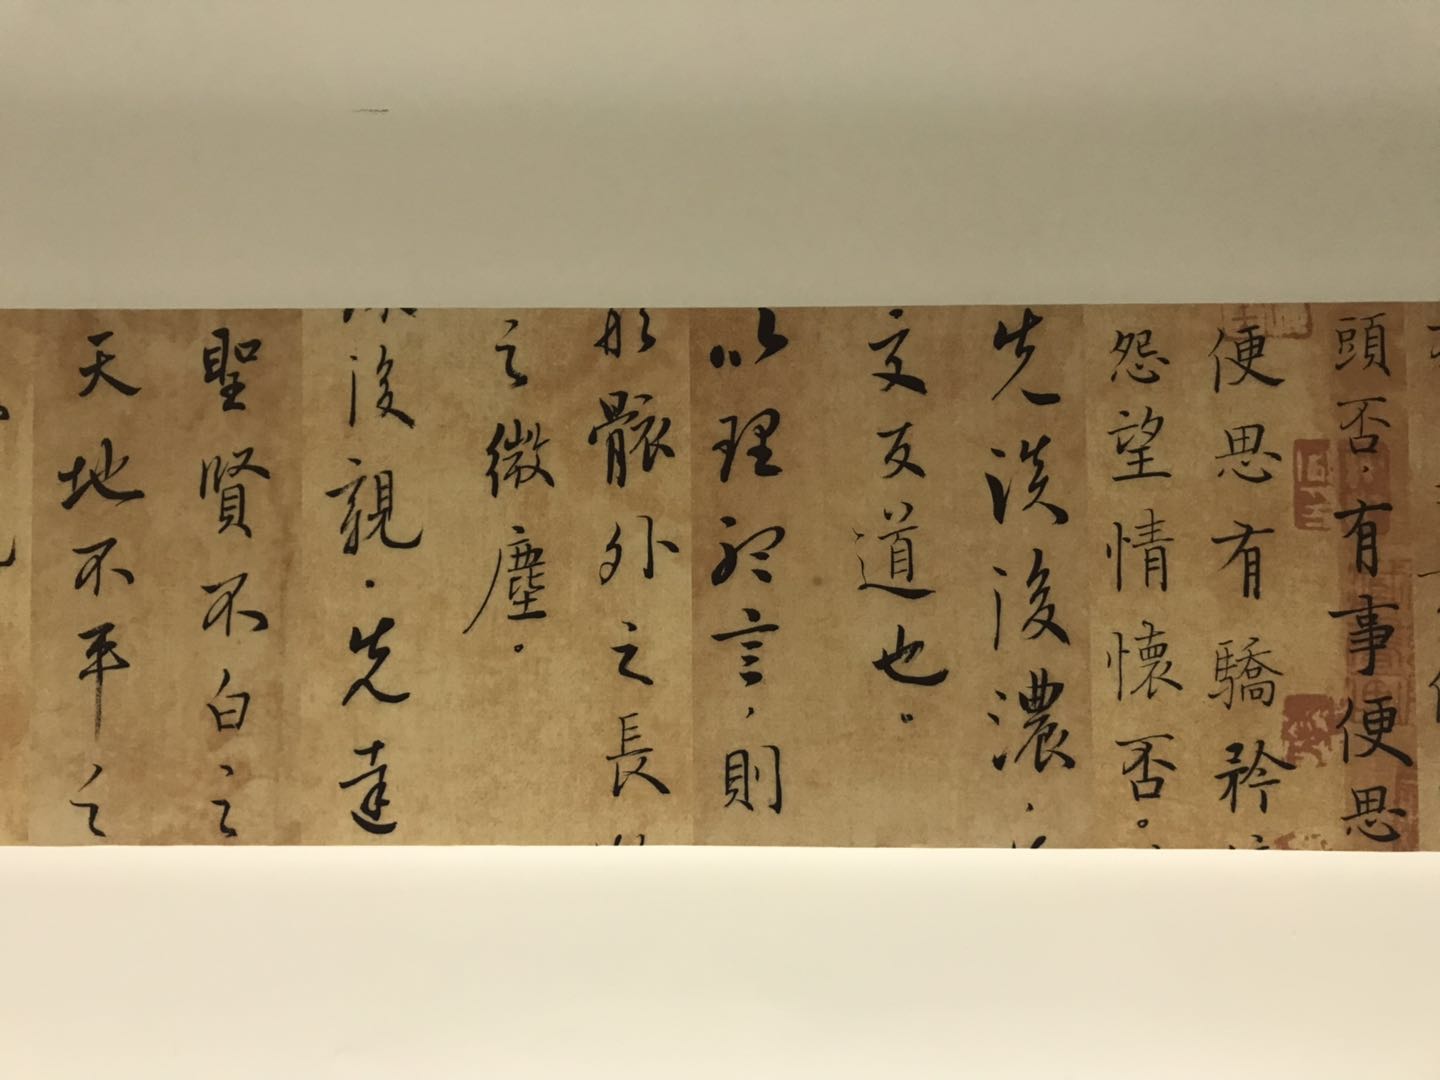 頭否，有事便思
便思有驕矜
怨望情懷否。
先淡後濃，
交友道也。
以理聽言，則
形骸外之長
之微塵。
後親，先達
聖賢不白之
天地不平之